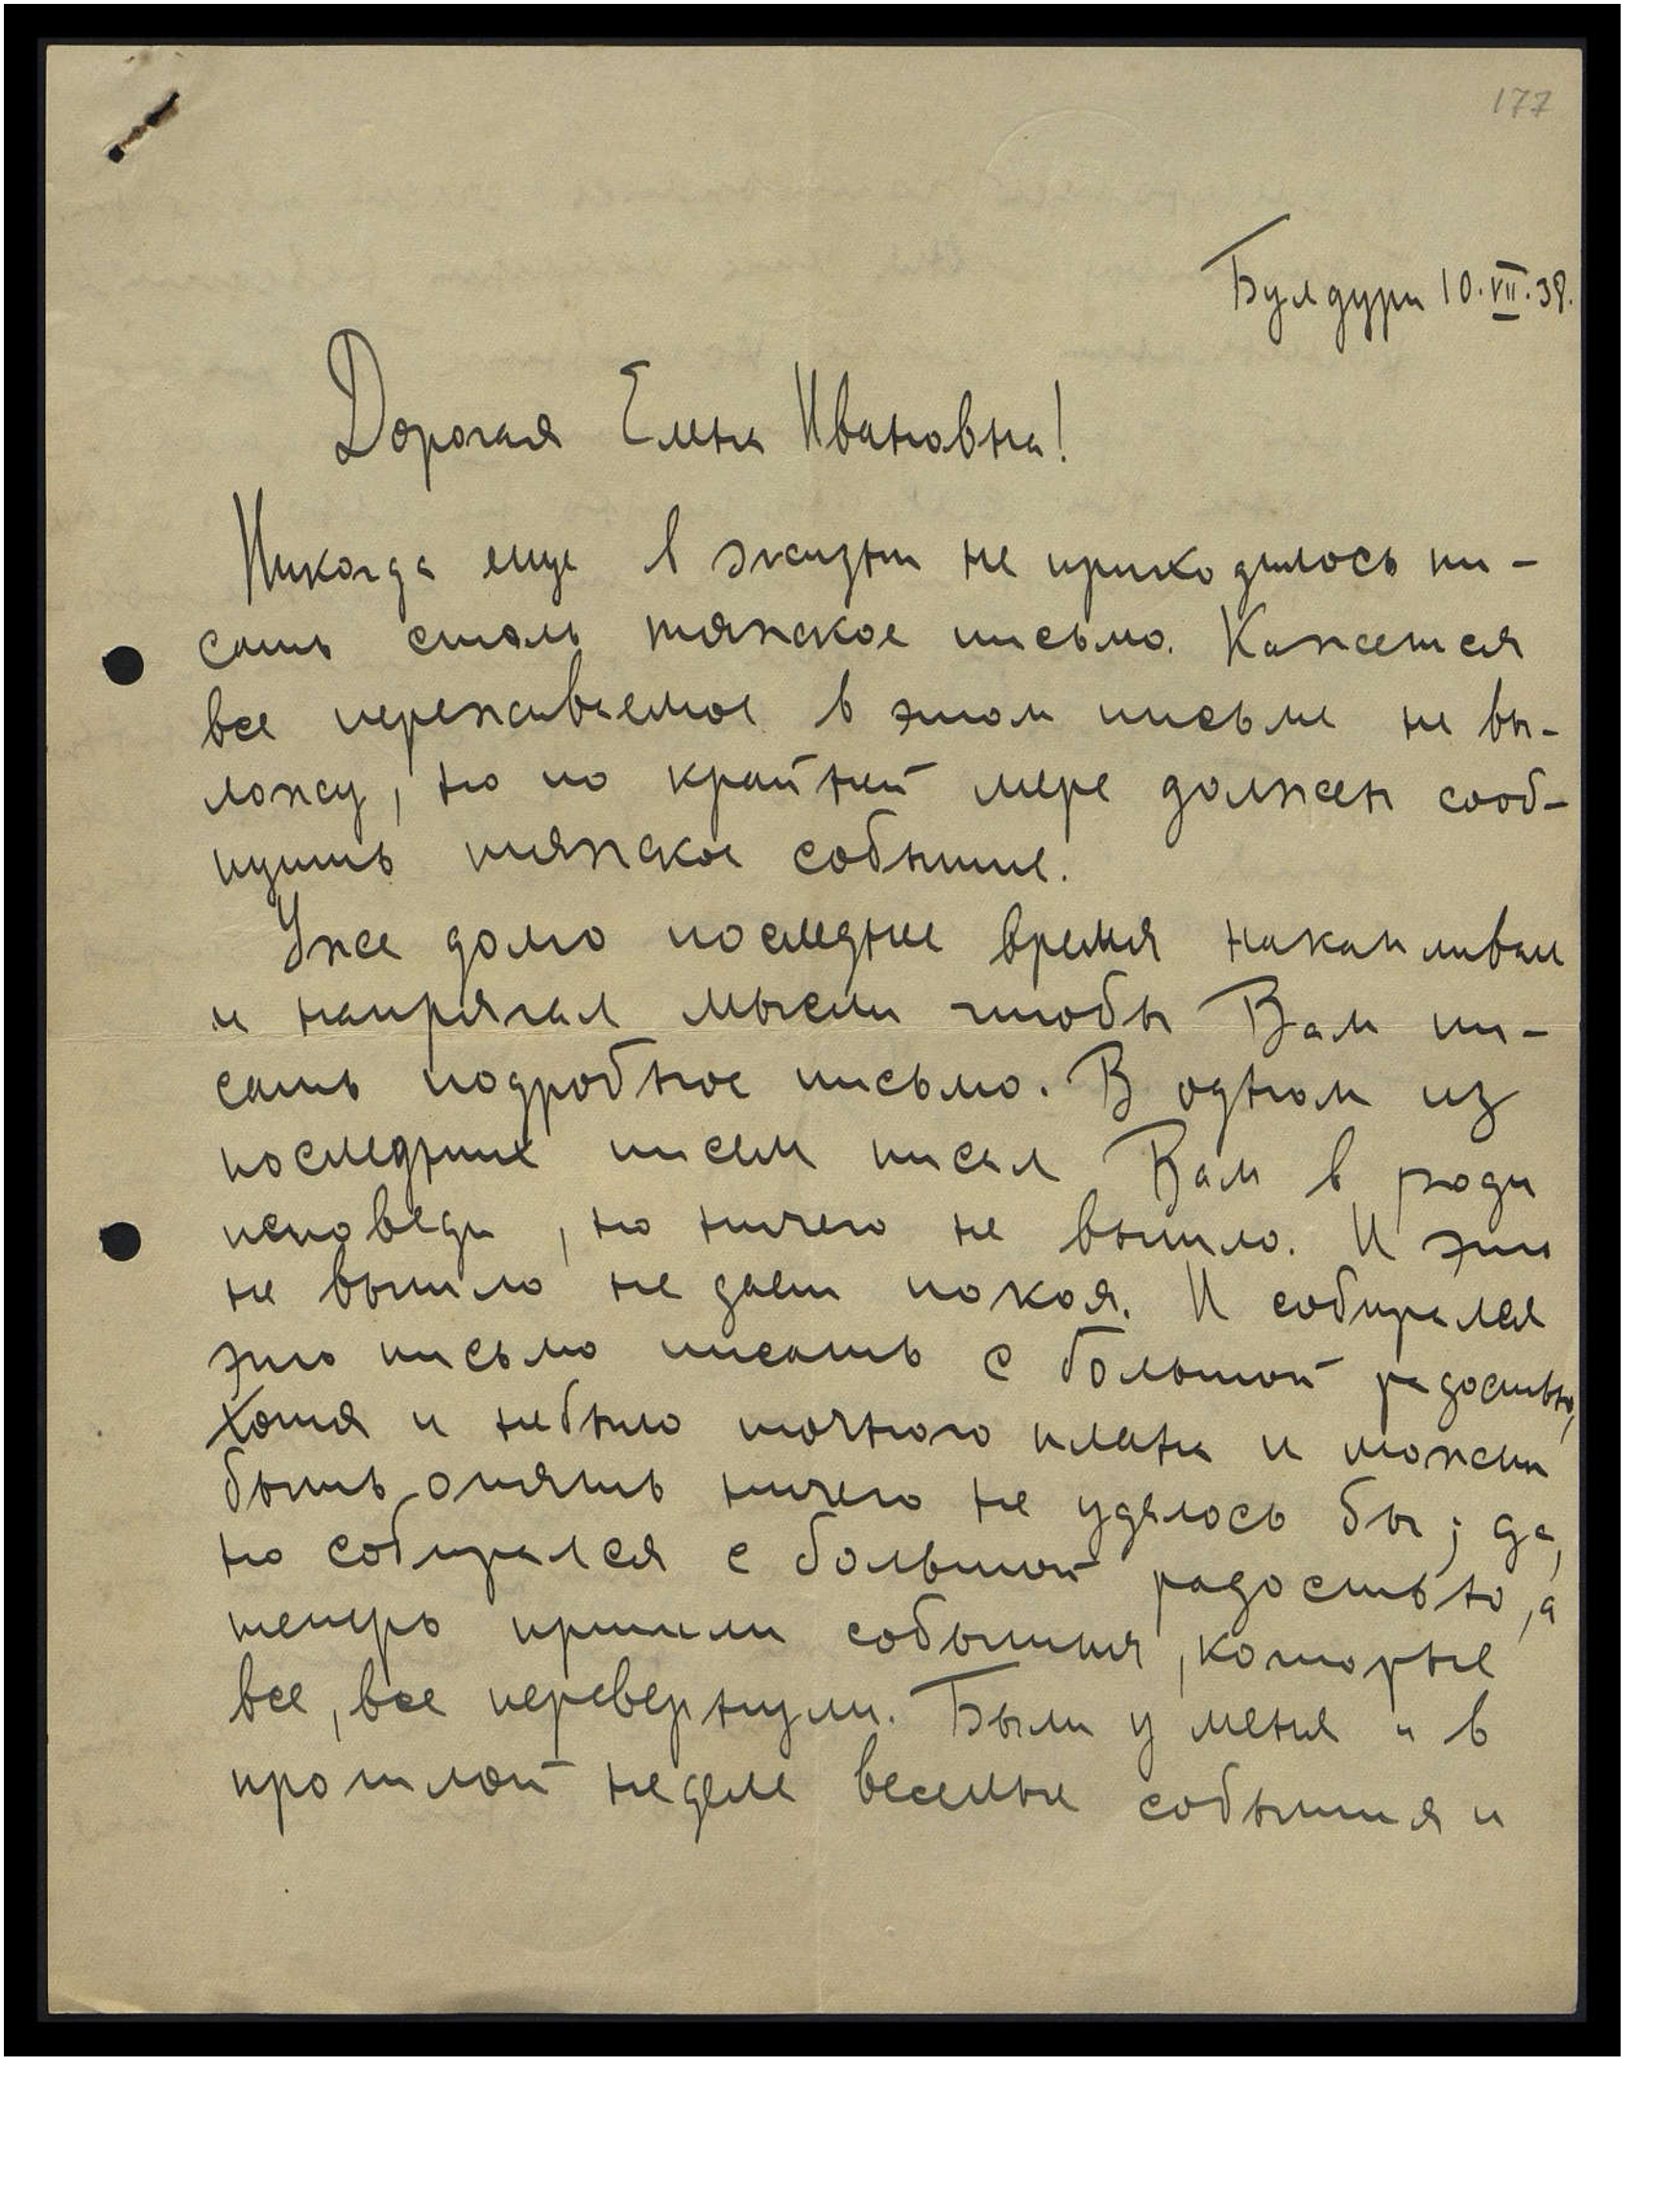 177
Булдури 10.VII.38.
Дорогая Елена Ивановна!
Никогда еще в жизни не приходилось пи-
сать столь тяжское письмо. Кажется
все переживаемое в этом письме не вы-
ложу, но по крайней мере должен сооб-
щить тяжское событие.
Уже долго последнее время накапливал
и напрягал мысли чтобы Вам пи-
сать подробное письмо. В одном из
последних писем писал Вам в роди
исповеди, но ничего не вышло. И это
не вышло не дает покоя. И собирался
это письмо писать с большой радостью,
хотя и небыло точного плана и может
быть опять ничего не удалось бы; да,
но собирался с большой радостью, а
теперь пришли события, которые
все, все перевернули. Были у меня и в
прошлой неделе веселые события и